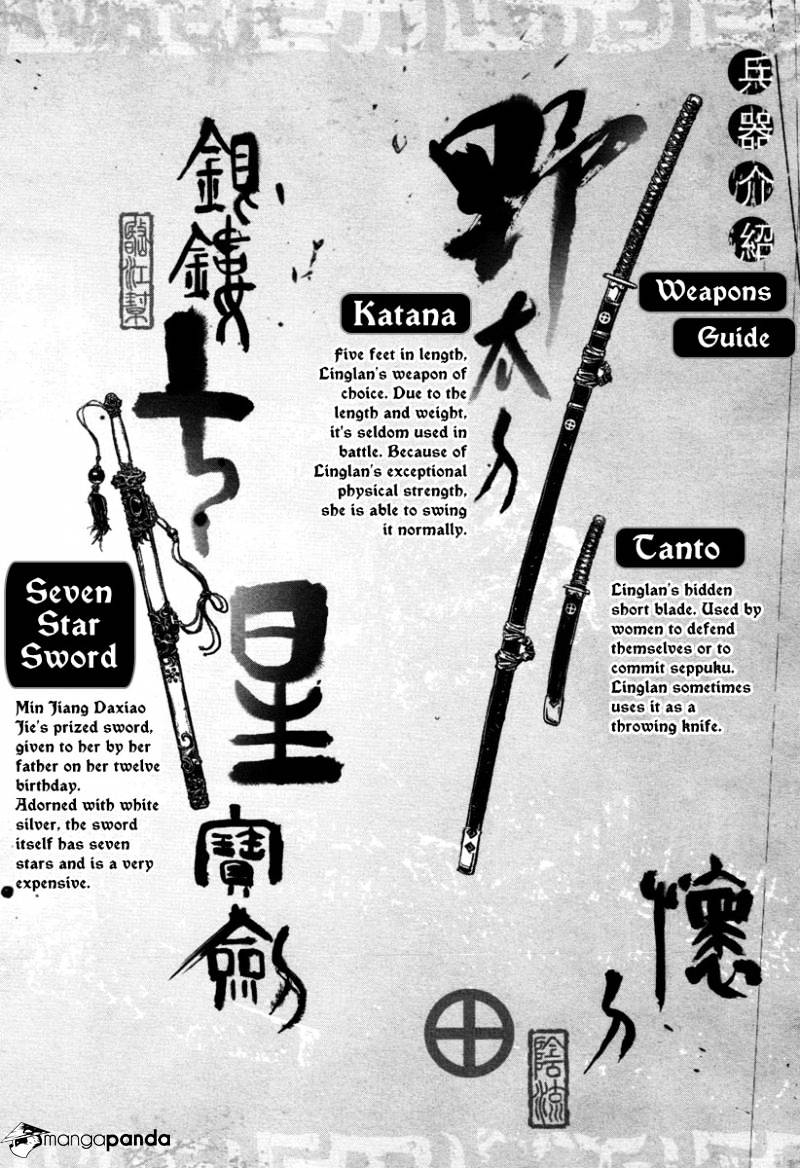 兵器介紹
Weapons
Guide
野太刀
Katana
Five feet in length,
Linglan's weapon of
choice. Due to the
length and weight,
it's seldom used in
battle. Because of
Linglan's exceptional
physical strength,
she is able to swing
it normally.
Tanto
Linglan's hidden
short blade. Used by
women to defend
themselves or to
commit seppuku.
Linglan sometimes
uses it as a
throwing knife.
懷刀
陰流
銀鏤
七星
寶劍
臨江幫
Seven
Star
Sword
Min Jiang Daxiao
Jie's prized sword,
given to her by her
father on her twelve
birthday.
Adorned with white
silver, the sword
itself has seven
stars and is a very
expensive.
mangapanda